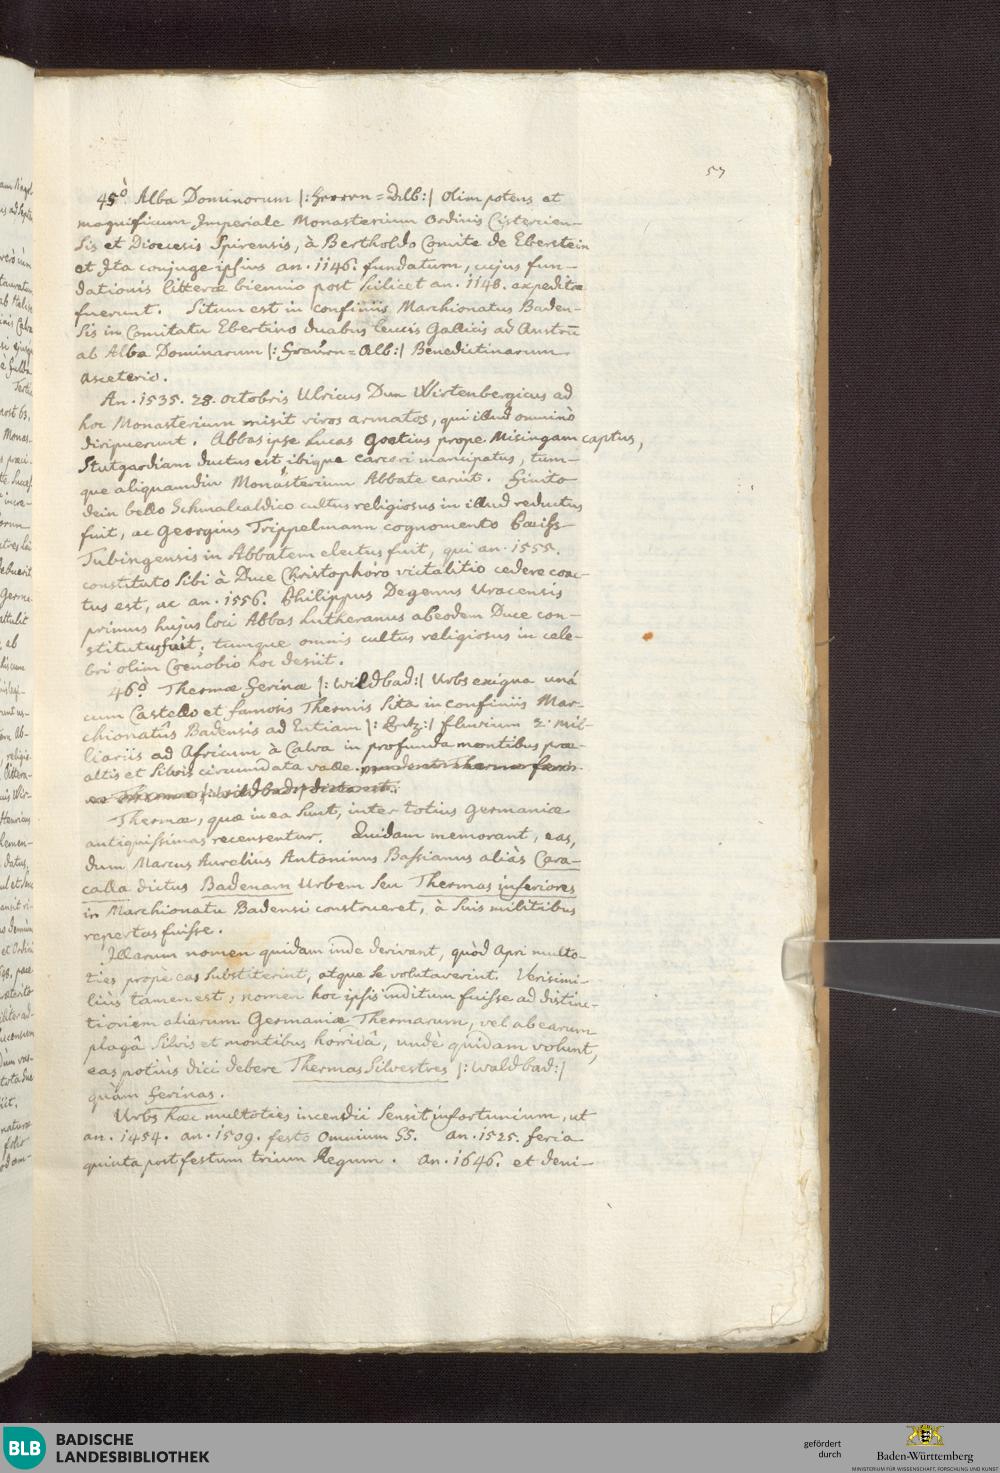 57
45ò Alba Dominorum |: Herrn=Alb:| olim potens et
magnificum Imperiale Monasterium ordinis Cistercien-
sis et Dioecesis Spirensis, à Bertholdo Comite de Eberstein
et Jta conjuge ipsius an. 1146. fundatum, cujus fun-
dationis litterae biennio post scilicet an. 1148. expeditae
fuerunt. Situm est in confiniis Marchionatus Baden-
sis in Comitatu Ebertino duabus leucis Gallicis ad Austrū
ab Alba Dominarum |: Frauen=Alb:| Benedictinarum
asceterio.
An. 1535. 28. octobris Ulricus Dux Wirtenbergicus ad
hoc Monasterium misit viros armatos, qui illud omninò
diripuerunt. Abbas ipse Lucas Goetius prope Misingam captus,
Stutgardiam ductus est, ibique carceri mancipatus, tum-
que aliquamdiu Monasterium Abbate caruit. Finito
dein bello Schmalcaldico cultus religiosus in illud reductus
fuit, ac Georgius Trippelmann cognomento
Tubingensis in Abbatem electus fuit, qui an. 1555.
constituto sibi à Duce Christophoro victalitio cedere coac-
tus est, ac an. 1556. Philippus Degenus Uracensis
primus hujus loci Abbas Lutheranus ab eodem Duce con-
stitutus fuit; tumque omnis cultus religiosus in cele-
bri olim Coenobio hoc desiit.
46ò Thermae Ferinae |: Wildbad:| Urbs exigua unà
cum Castello et famosis Thermis sita in confiniis Mar-
chionatûs Badensis ad Entiam |: Entz:| fluvium 2. mil-
liariis ad Africum à Calva in profunda montibus prae-
altis et silvis circumdata valle.
Thermae, quae in ea sunt, inter totius Germaniae
antiquissimas recensentur. Quidam memorant, eas,
dum Marcus Aurelius Antoninus Bassianus aliàs Cara-
calla dictus Badenam Urbem seu Thermas inferiores
in Marchionatu Badensi construeret, à suis militibus
repertas fuisse.
Illarum nomen quidam inde derivant, quòd Apri multo-
ties propè eas substiterint, atque se volutaverint. Verisimi-
liùs tamen est, nomen hoc ipsis inditum fuisse ad distinc-
tionem aliarum Germaniae Thermarum, vel ab earum
plagâ silvis et montibus horridâ, unde quidam volunt,
eas potiùs dici debere Thermas Silvestres |: Waldbad:|
quàm Ferinas.
Urbs haec multoties incendii sensit infortunium, ut
an. 1454. an. 1509. festo Omnium SS. an. 1525. feria
quinta post festum trium Regum. an. 1646. et deni-
BLB
BADISCHE
LANDESBIBLIOTHEK
gefördert
durch
Baden-Württemberg
MINISTERIUM FÜR WISSENSCHAFT, FORSCHUNG UND KUNST